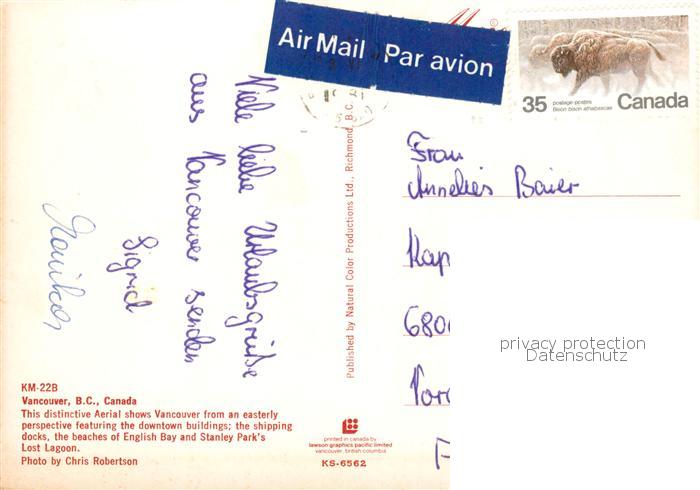 Air Mail Par avion
35 postage-postes Canada
Bison bison athabascae
Viele liebe Urlaubsgrüße
aus Vancouver senden
Sigrid
Monika
Published by Natural Color Productions Ltd., Richmond, B.C.
Frau
Annelies Baier
Kap
680
Vor
F
privacy protection
Datenschutz
KM-22B
Vancouver, B.C., Canada
This distinctive Aerial shows Vancouver from an easterly
perspective featuring the downtown buildings; the shipping
docks, the beaches of English Bay and Stanley Park's
Lost Lagoon.
Photo by Chris Robertson
printed in canada by
lawson graphics pacific limited
vancouver, british columbia
KS-6562